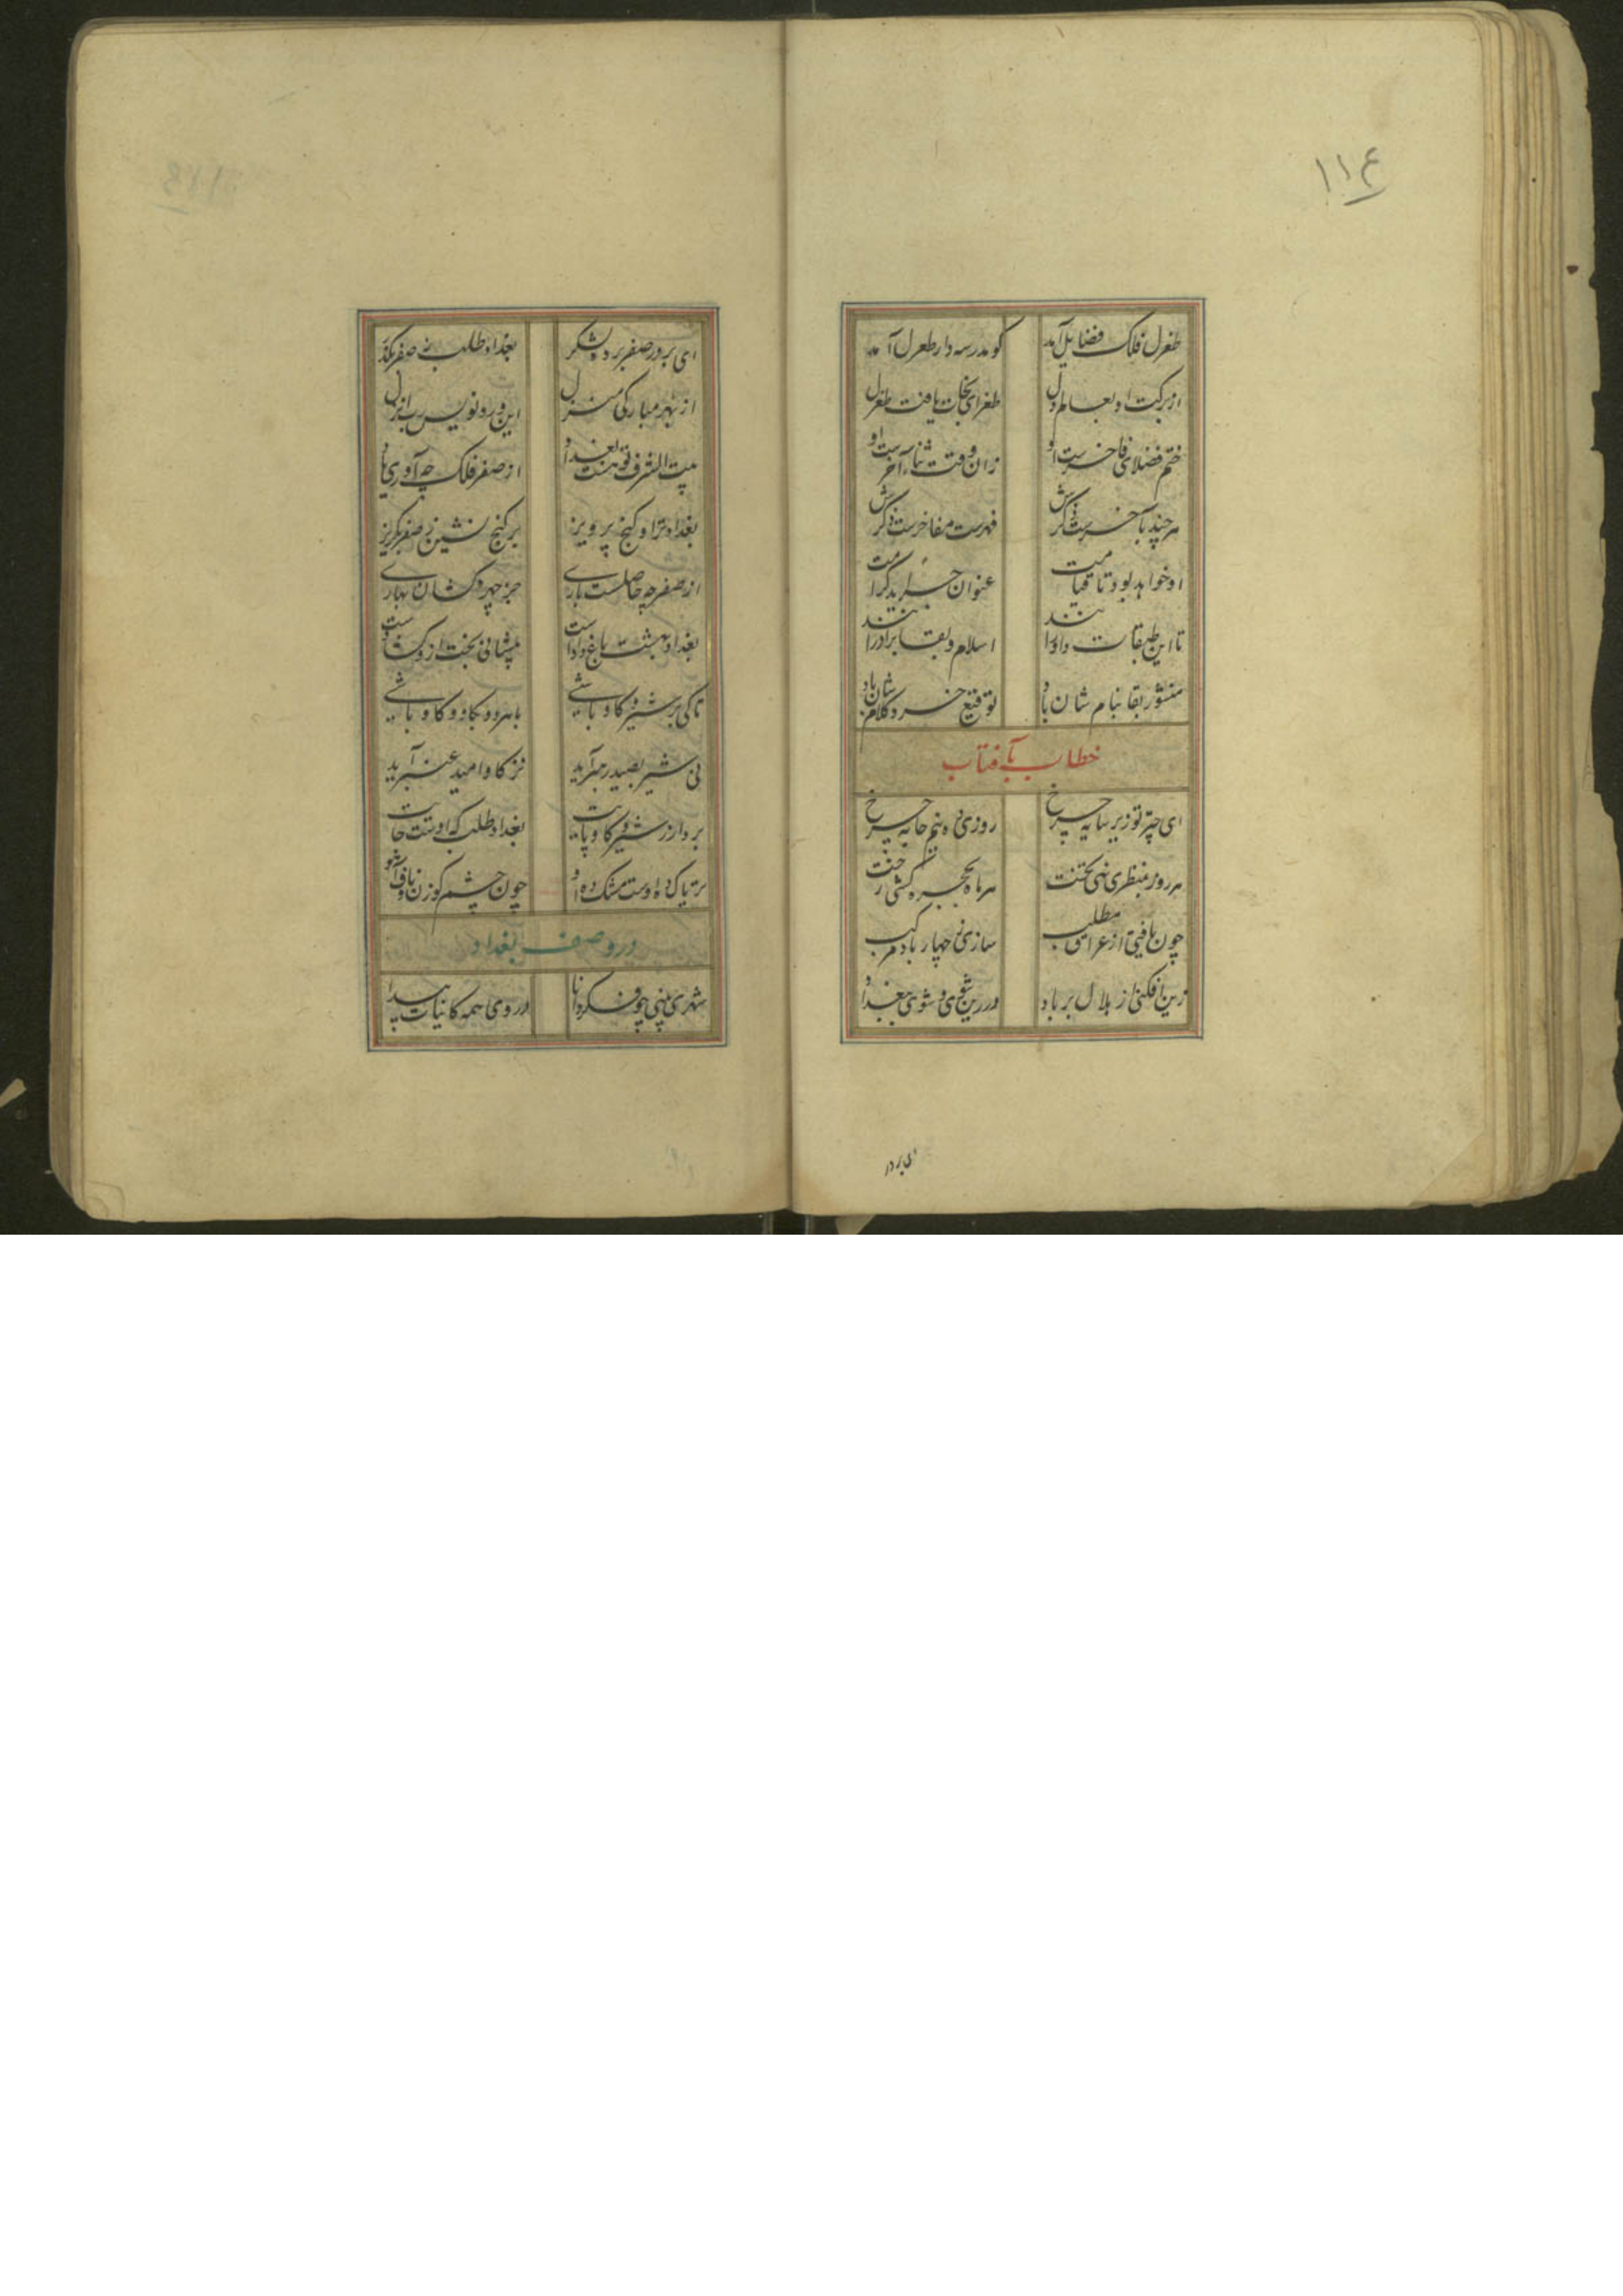 ۱۱۴
طغرل فلک فضایل آمد کو مدرسه دار طغرل آمد
از برکت او بعالم دل طغرای نجات یافت طغرل
ختم فضلای فاخرست او زان وقت ثناء آخرست او
هر چند بآخرست ذکرش فهرست مفاخرست ذکرش
او خواهد بود تا قیامت عنوان جراید کرامت
تا این طبقات دادارند اسلام و بقا برادرانند
منشور بقا بنام شان باد توقیع خرد کلام شان باد
خطاب بآفتاب
ای چتر تو زیر سایه چرخ روزی ده پنج خایه چرخ
هر روز بمنظری نهی تخت هر ماه بحجره کشی رخت
چون یافتی از عراق مطلب سازی ز چهار باد مرکب
زین افکنی از هلال بر باد در رین شوی و شوی ببغداد
ای بر در
ای بر در صفر برده لشکر بغداد طلب ز صفر بگذر
از بهر مبارکی منزل این ورد نویس رب انزل
بیت الشرف تو هست بغداد از صفر فلک چه آوری یاد
بغداد ترا و گنج پرویز بر گنج نشین ز صفر بگریز
از صفر چه حاصلست باری جز چهره گشادن بهاری
بغداد بهشت باغ دادست پیشانی بخت ازو گشادست
تا کی بر شیر و گاو باشی با هر دو بکاو و کاو باشی
نی شیر بصید رهبر آید نز گاو امید عنبر آید
بردار ز شیر و گاو پایت بغداد طلب که اوست جایت
تریاک ده اوست مشک ده او چون چشم گوزن و ناف آهو
در وصف بغداد
شهری بینی چو فکر دانا در وی همه کاینات پیدا